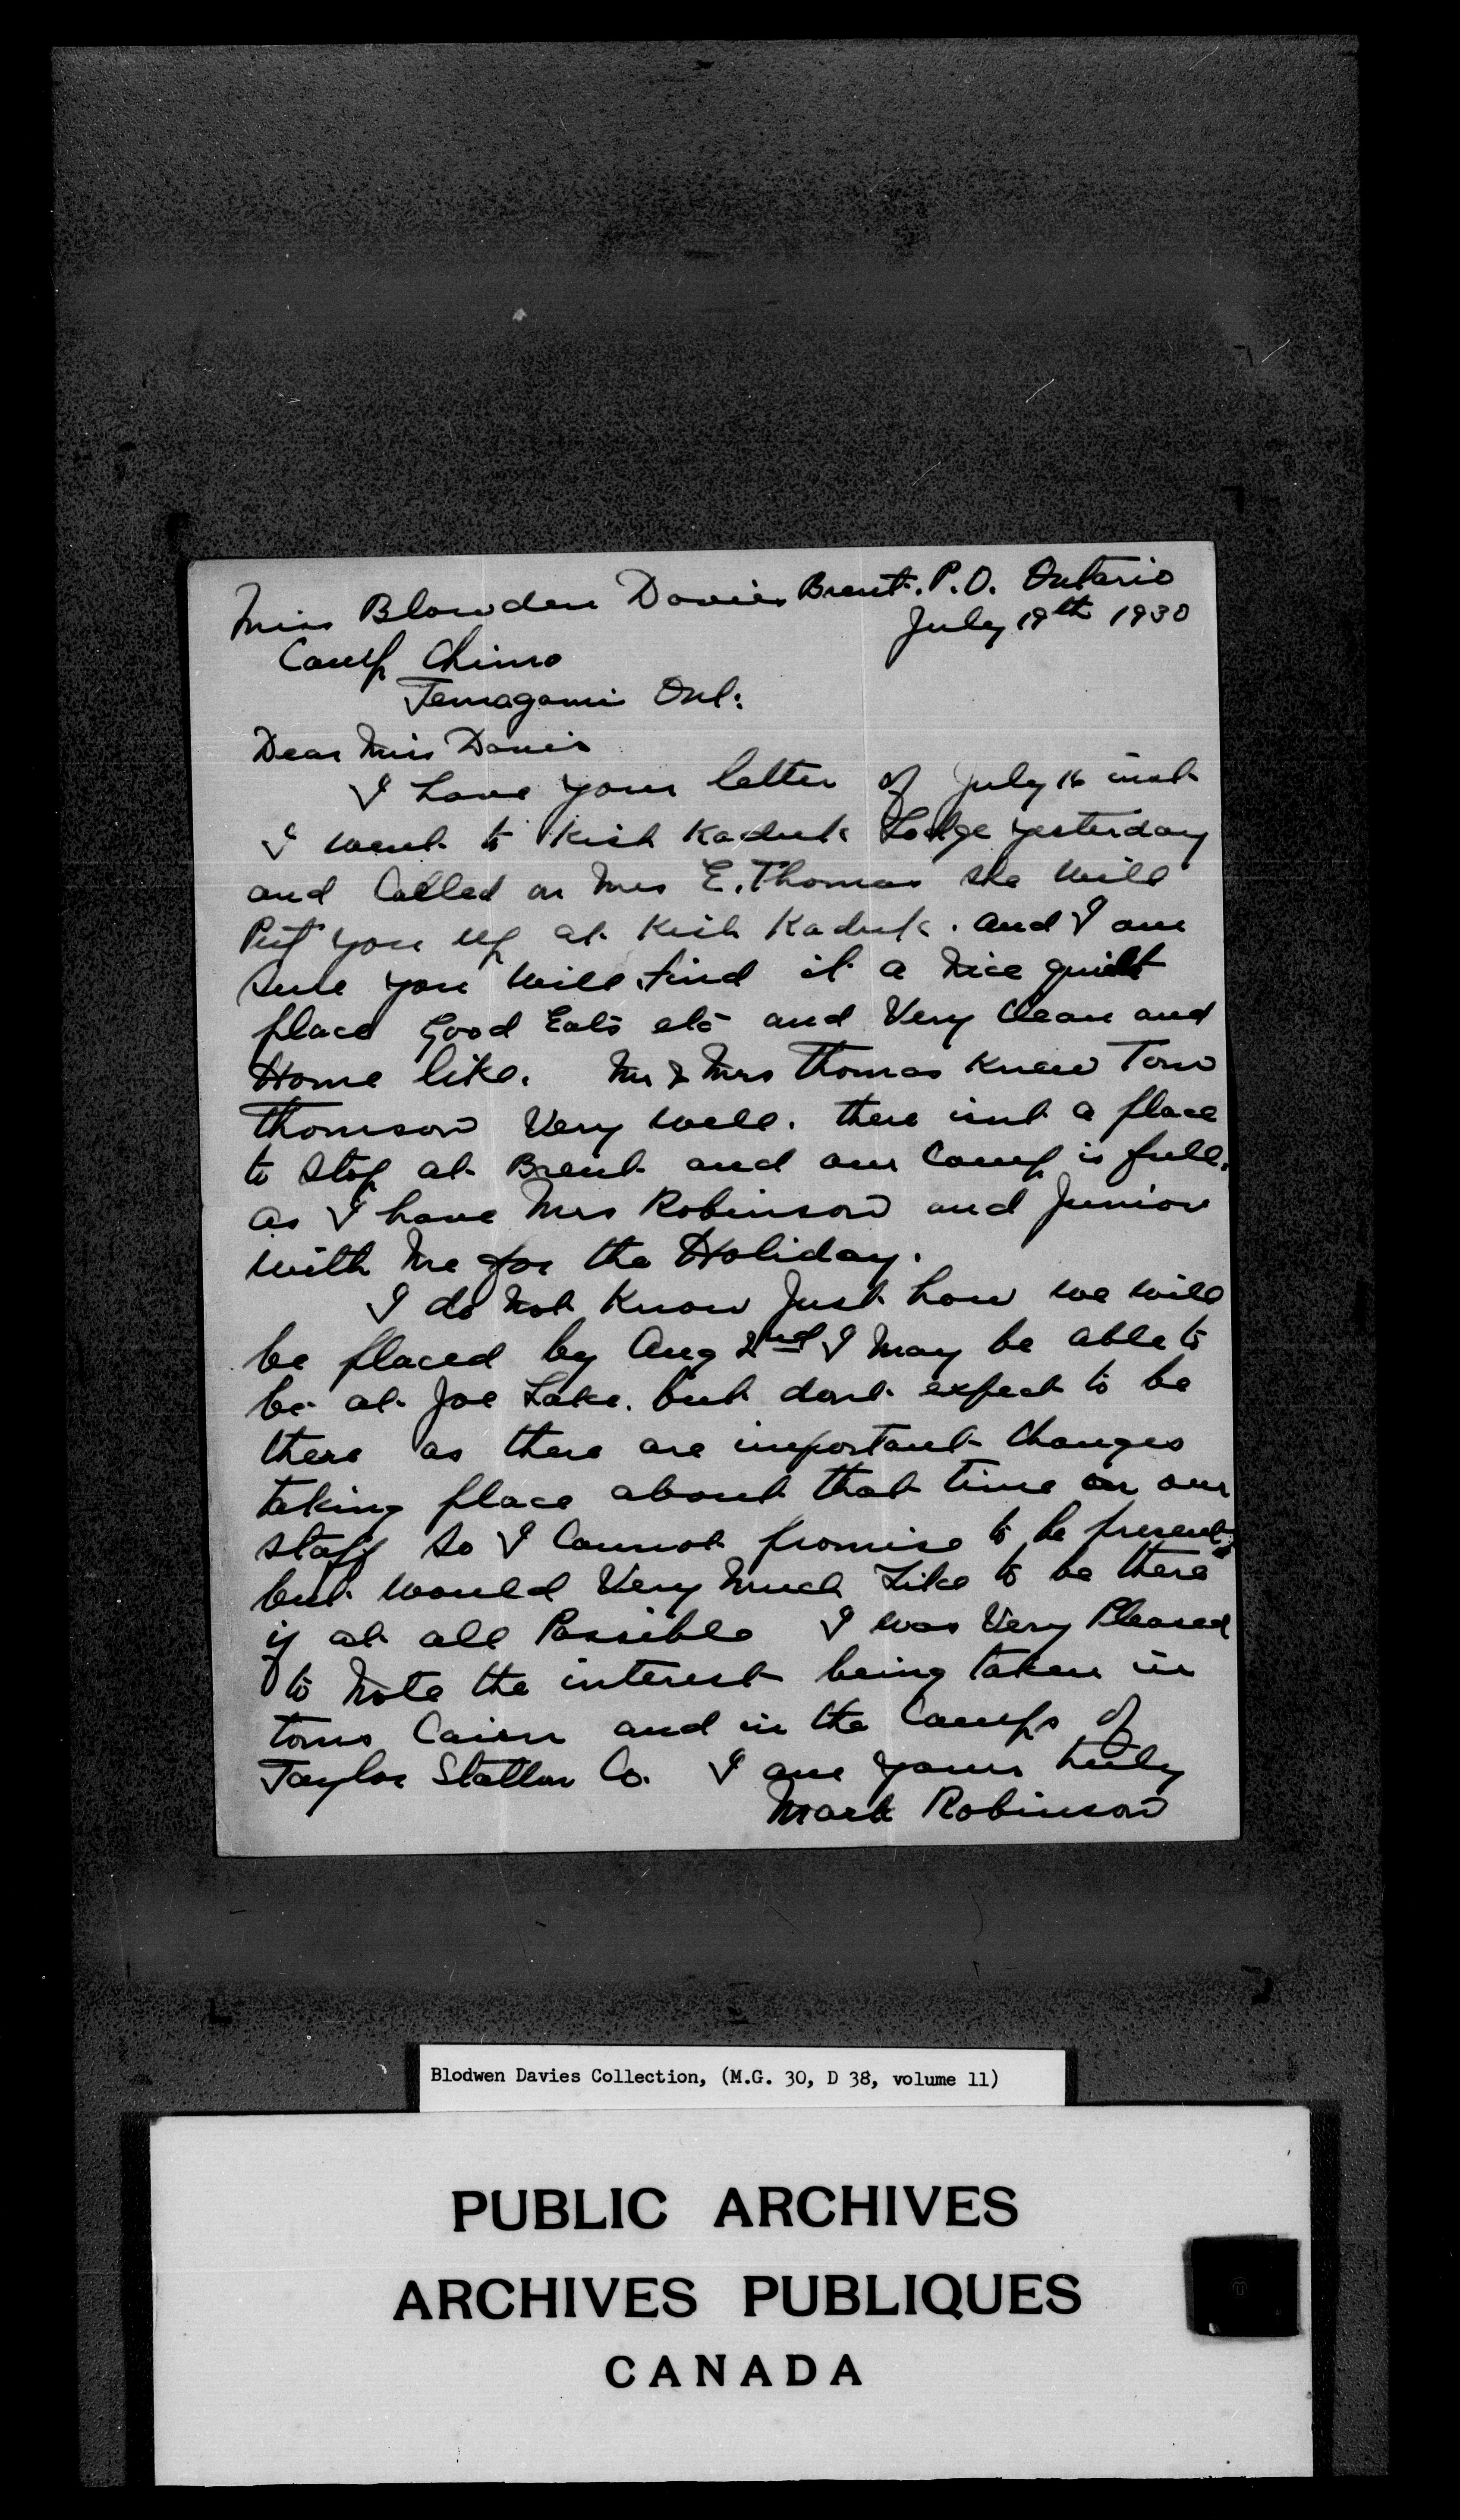 Brent. P.O. Ontario
July 19th 1930
Miss Blowden Davies
Camp Chimo
Temagami Ont:
Dear Miss Davis
I have your letter of July 16 inst
I went to Kish Kaduk Lodge yesterday
and Called on Mrs E. Thomas she Will
Put you up at Kish Kaduk. and I am
sure you Will find it a Nice quiet
place Good Eats etc and Very Clean and
Home like. Mr & Mrs Thomas Knew Tom
Thomson Very well. there isnt a place
to stop at Brent and our Camp is full.
as I have Mrs Robinson and Junior
with Me for the Holiday.
I do Not Know Just how we will
be placed by Aug 2nd I May be able to
be at Joe Lake. but dont expect to be
there as there are important Changes
taking place about that time on our
staff so I Cannot promise to be present
but would Very Much Like to be there
if at all Possible I was Very Pleased
to Note the interest being taken in
toms Cairn and in the Camps of
Taylor Statten Co. I am yours truly
Mark Robinson
Blodwen Davies Collection, (M.G. 30, D 38, volume 11)
PUBLIC ARCHIVES
ARCHIVES PUBLIQUES
CANADA